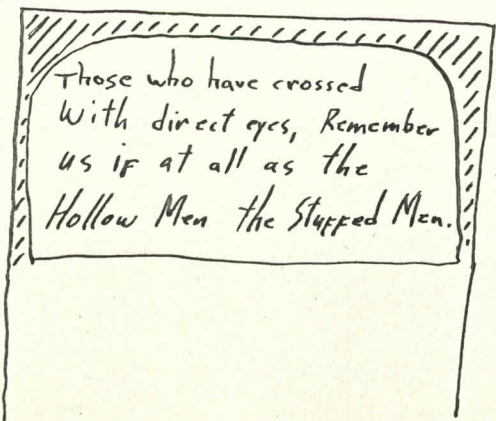 Those who have crossed
With direct eyes, Remember
us if at all as the
Hollow Men the Stuffed Men.